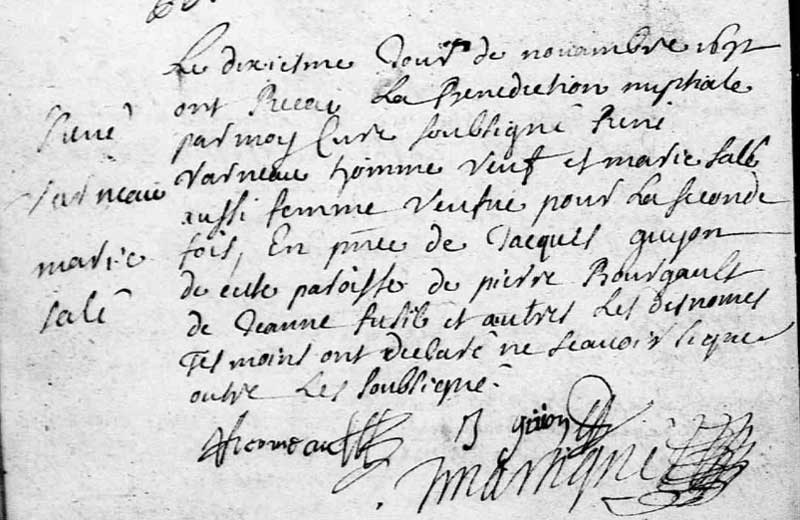 René
varneau
marie
salé
Le dixiesme Jour de nouambre 1692
ont Receu La Benediction nuptiale
par moy Curé soubsigné René
varneau homme veuf et marie salé
aussi femme veufue pour La seconde
fois, En pnce de Jacques guyon
de cette paroisse de pierre Bourgault
de Jeanne fusib et autres Les disnomes
Tesmoins ont declaré ne scauoir signer
outre Les soubsigné
J guion